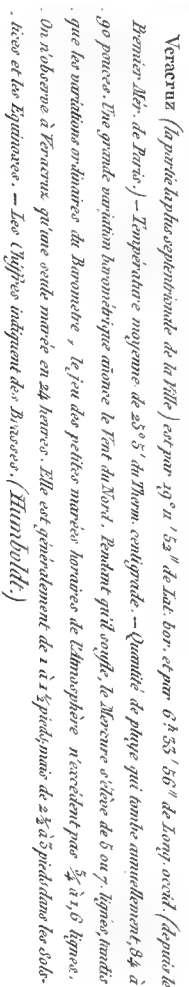 Veracruz (la partie la plus septentrionale de la Ville) est par 19° 11' 52" de Lat. bor. et par 6h 33' 56" de Long. occid (depuis le
Premier Mér. de Paris.) — Température moyenne de 25° 5' du Therm. centigrade. — Quantité de pluye qui tombe annuellement, 84 à
90 pouces. Une grande variation barométrique anonce le Vent du Nord. Pendant qu'il soufle, le Mercure s'élève de 5 ou 7. lignes, tandis
que les variations ordinaires du Barometre, le jeu des petites marées horaires de l'Atmosphère n'excédent pas 3/4 à 1,6 lignes.
On n'observe à Veracruz qu'une seule marée en 24 heures. Elle est généralement de 1 à 1 1/2 pieds, mais de 2 1/2 à 3 pieds dans les Sols-
tices et les Equinoxes. — Les Chyffres indiquent des Brasses. (Humboldt.)